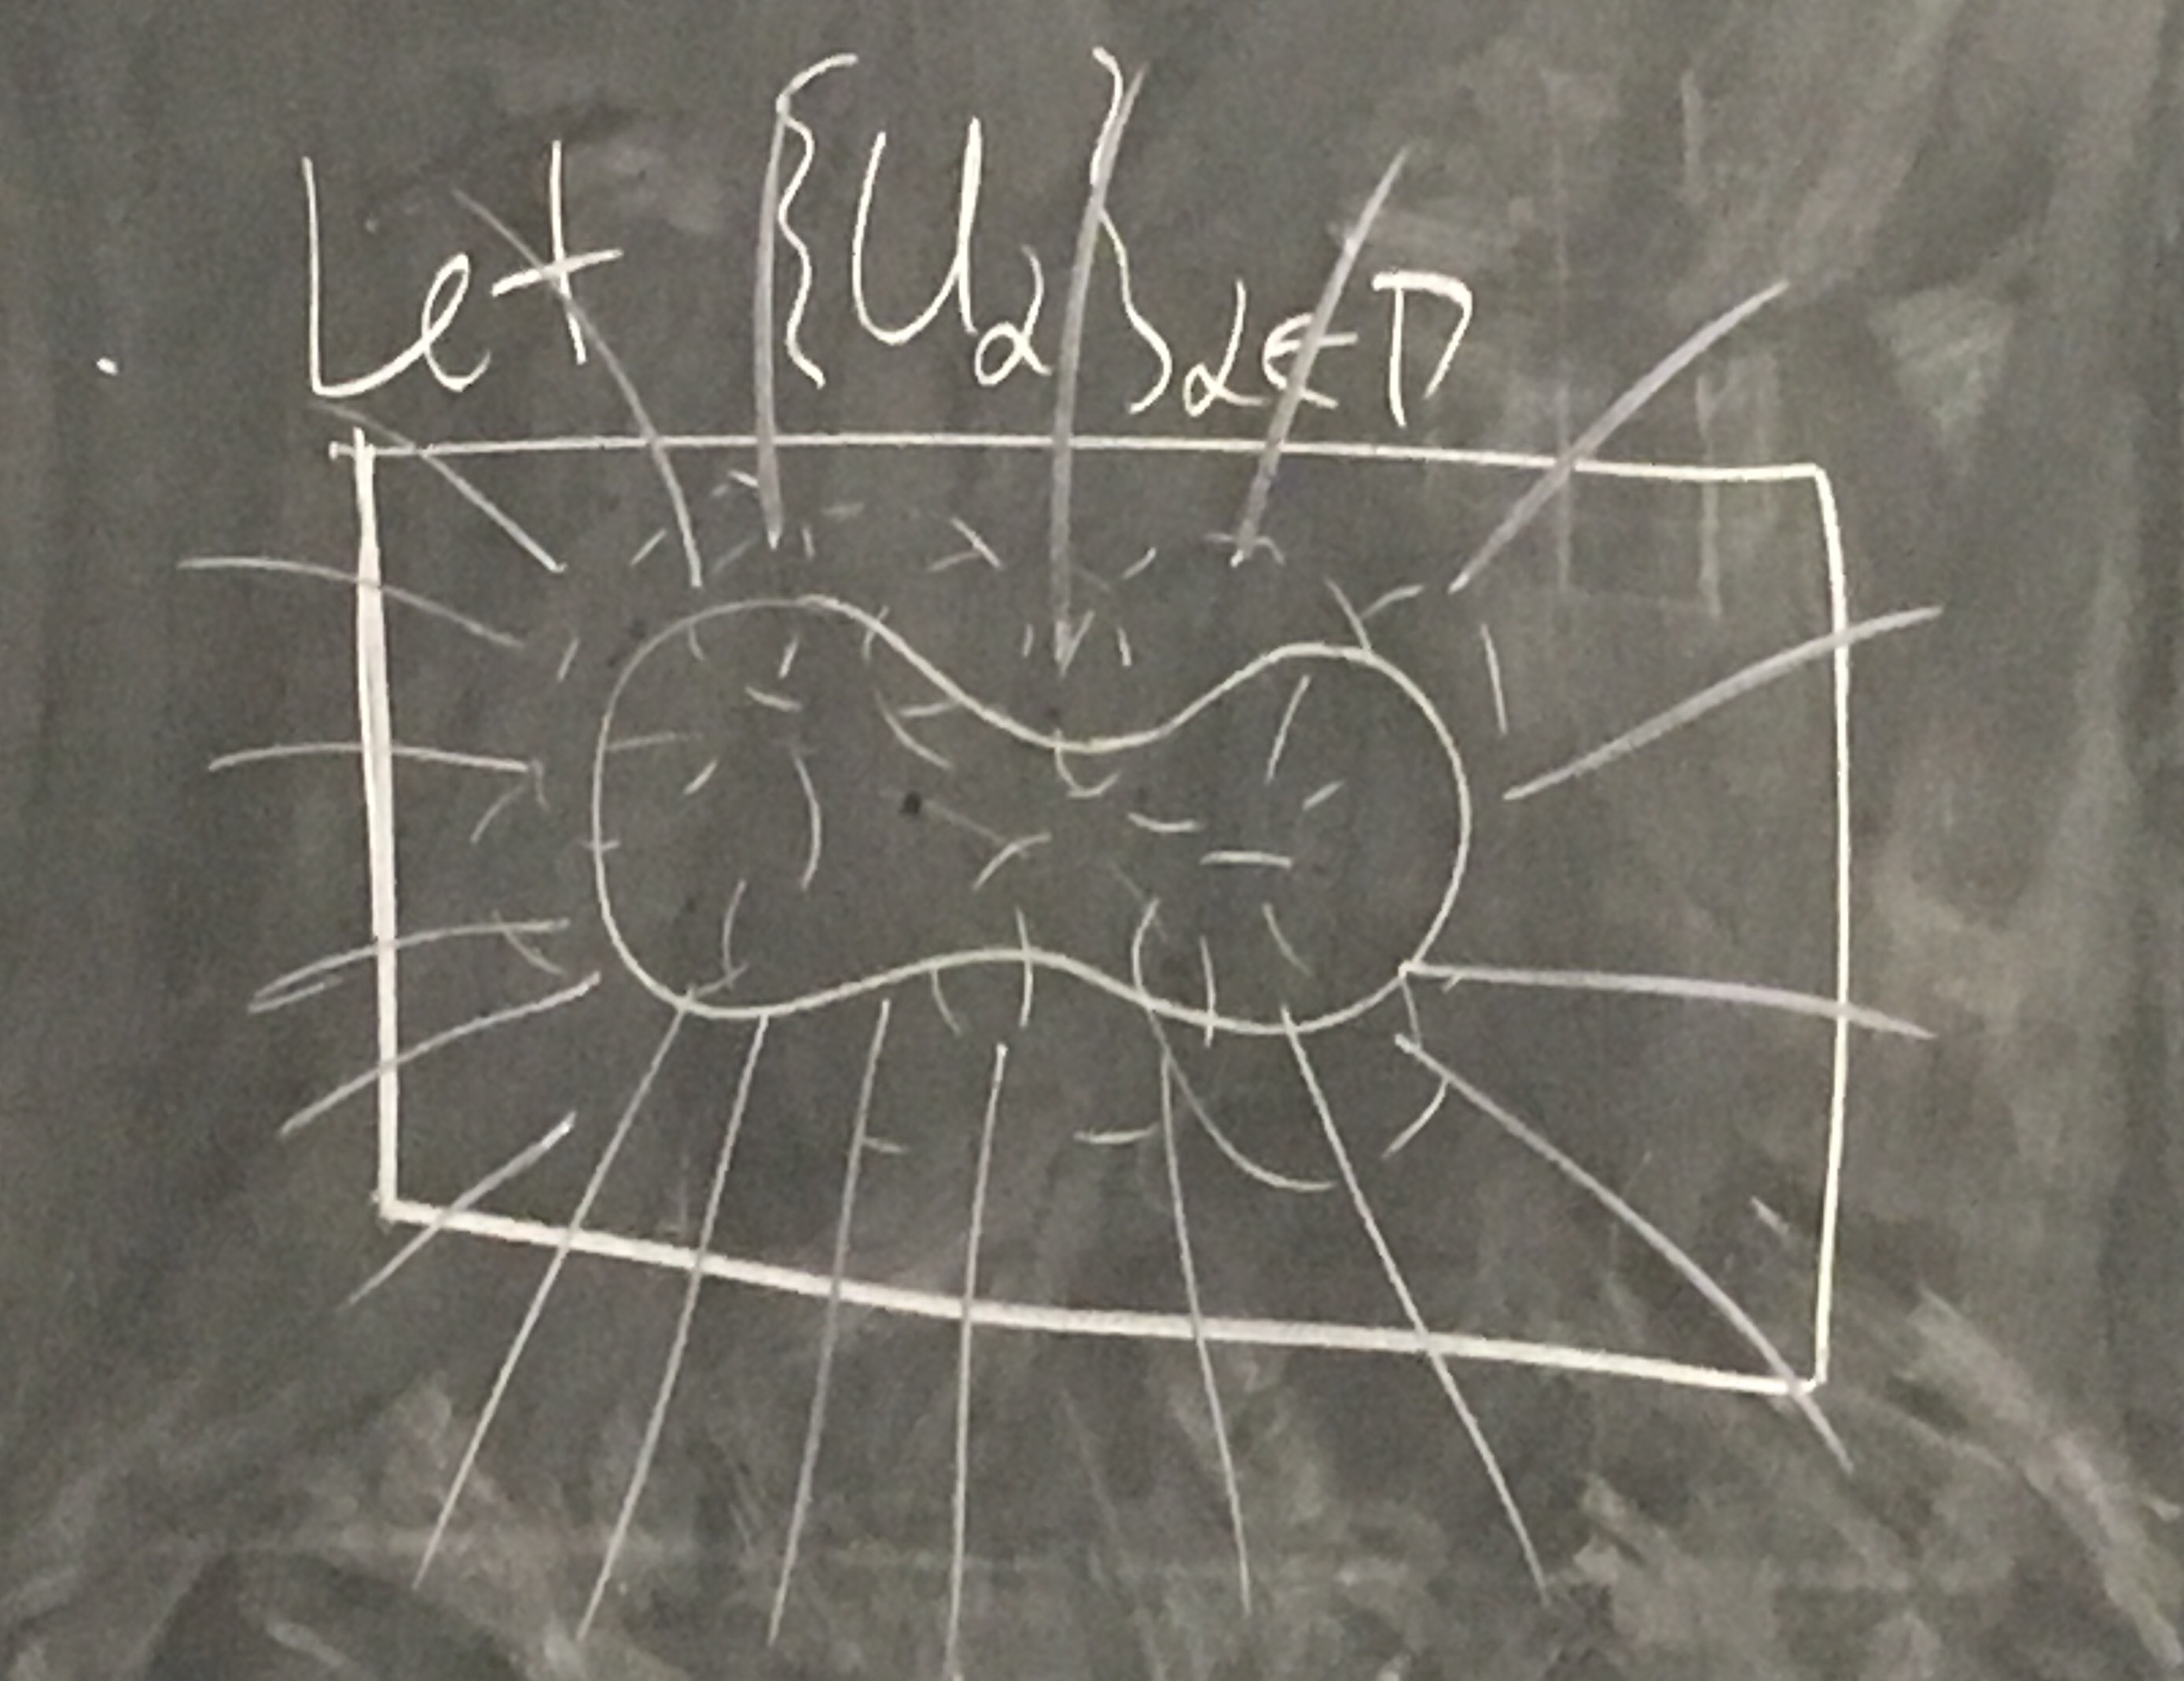 Let {U_α}_{α∈Γ}